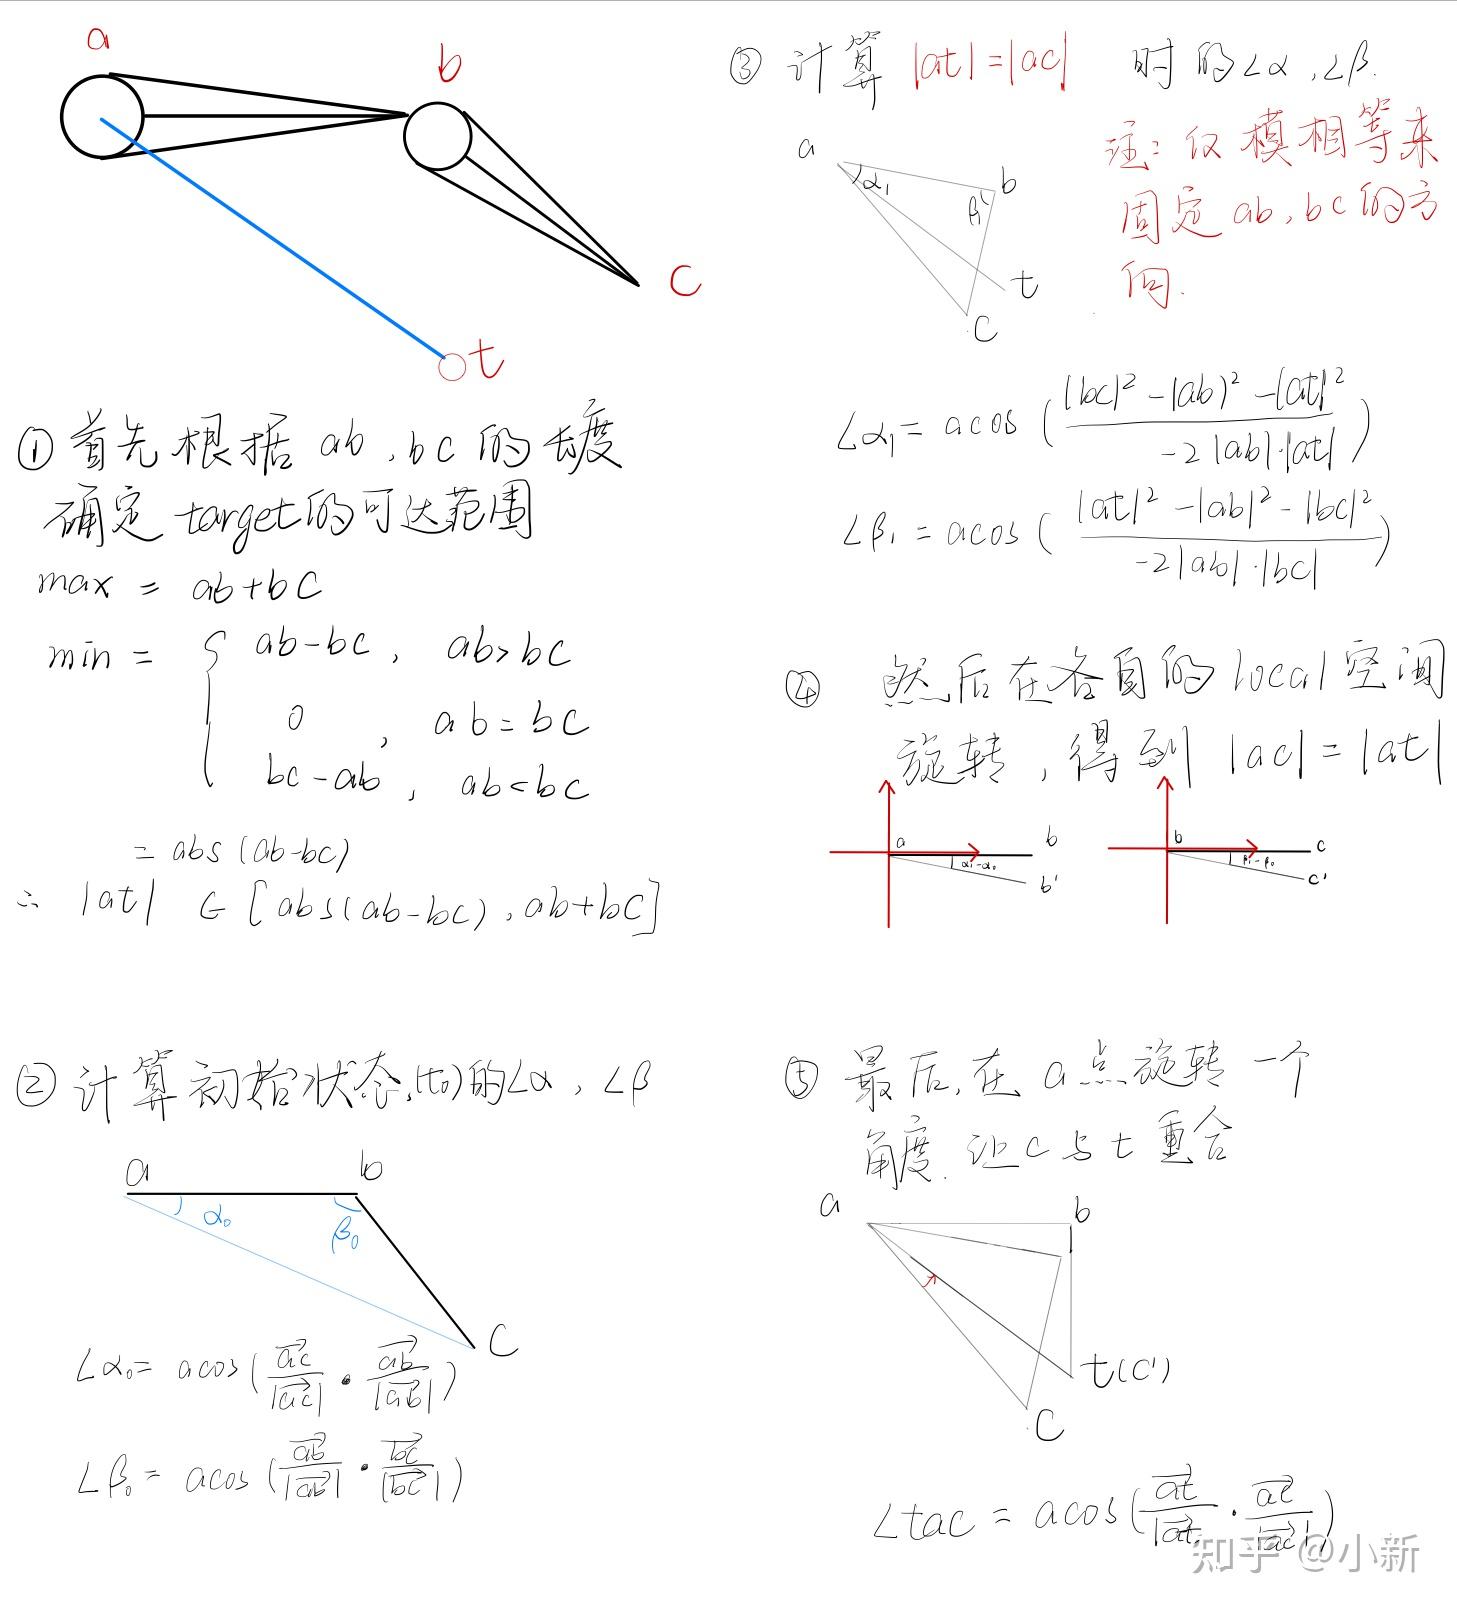 a
b
c
t
① 首先根据 ab, bc 的长度
确定 target的可达范围
max = ab+bc
min = { ab-bc, ab>bc
0, ab=bc
bc-ab, ab<bc
= abs(ab-bc)
∴ |at| ∈ [abs(ab-bc), ab+bc]
② 计算初始状态(t₀)的∠α, ∠β
a
b
α₀
β₀
c
∠α₀= acos(ac/|ac| · ab/|ab|)
∠β₀= acos(ab/|ab| · bc/|bc|)
③ 计算 |at|=|ac| 时的∠α, ∠β.
注: 仅模相等来
固定 ab, bc 的方
向.
a
α₁
b
β₁
t
c
∠α₁= acos((|bc|²-|ab|²-|at|²)/(-2|ab|·|at|))
∠β₁= acos((|at|²-|ab|²-|bc|²)/(-2|ab|·|bc|))
④ 然后在各自的local空间
旋转, 得到 |ac|=|at|
a
b
α₁-α₀
b'
b
c
β₁-β₀
c'
⑤ 最后, 在 a点旋转一个
角度. 让 c 与 t 重合
a
b
t(c')
c
∠tac = acos(at/|at| · ac/|ac|)
知乎 @小新